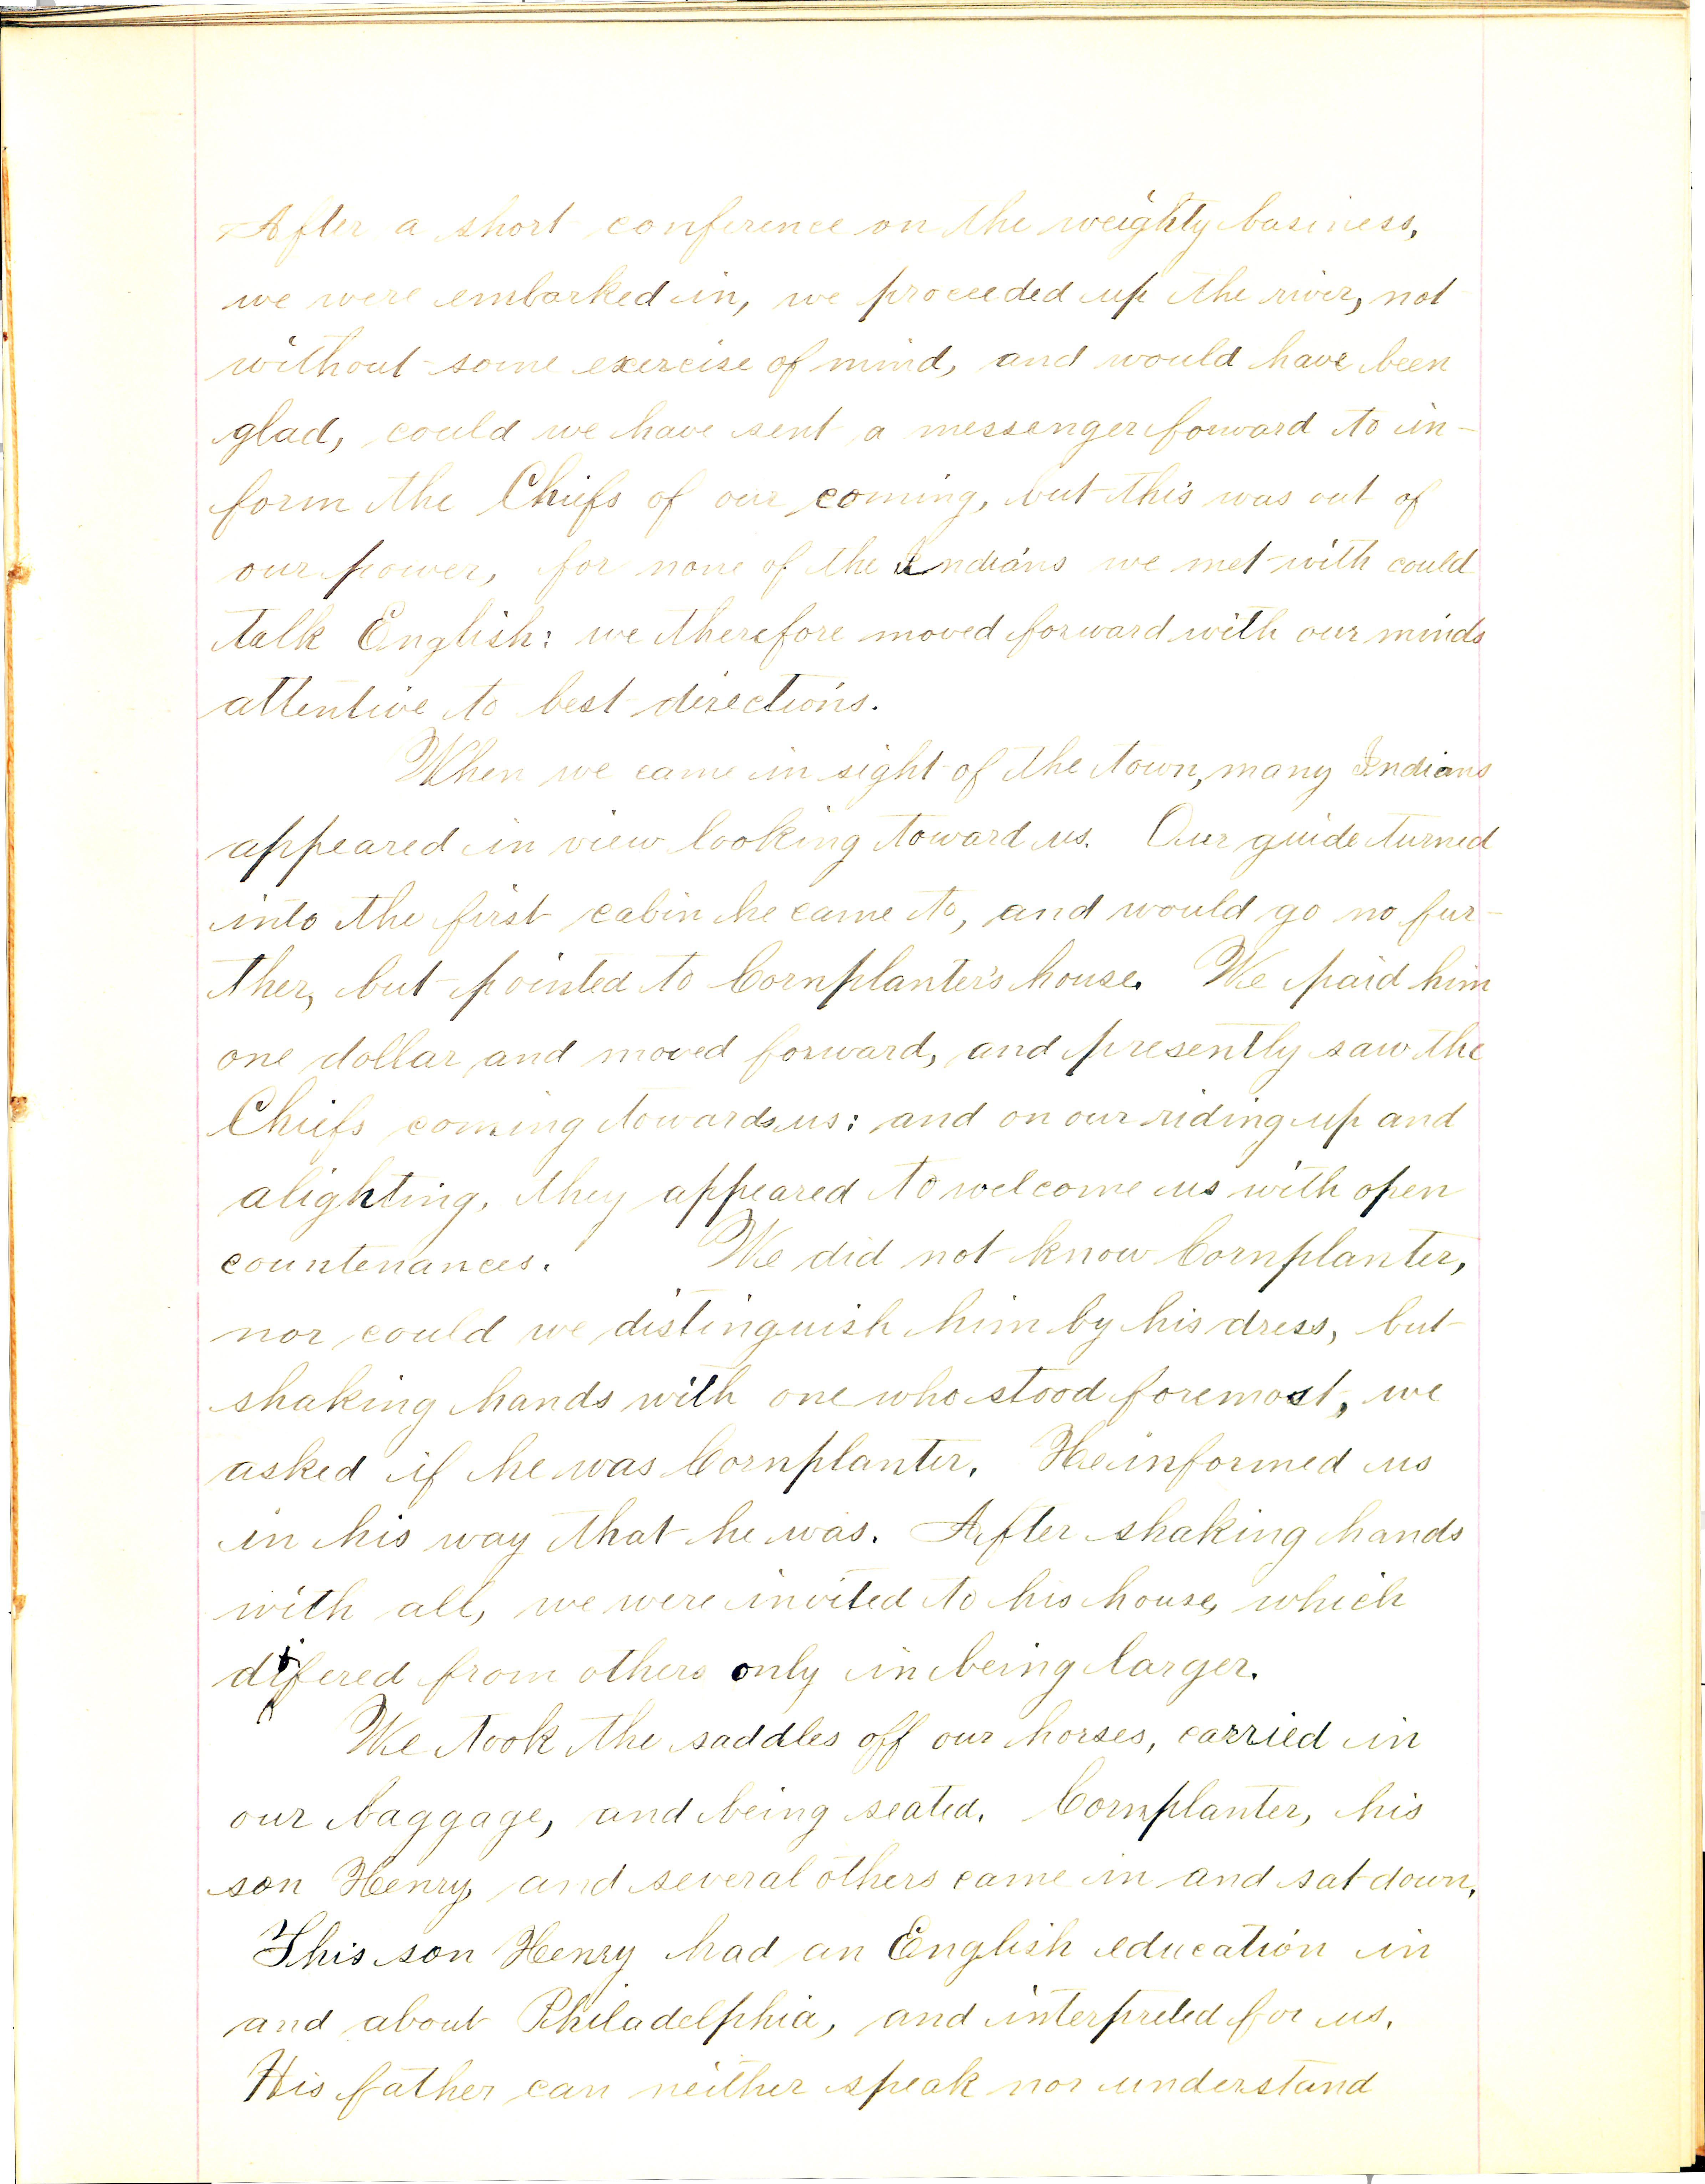 After a short conference on the weighty business,
we were embarked in, we proceeded up the river, not
without some exercise of mind, and would have been
glad, could we have sent a messenger forward to in-
form the Chiefs of our coming, but this was out of
our power, for none of the Indians we met with could
talk English: we therefore moved forward with our minds
attentive to best directions.
When we came in sight of the town, many Indians
appeared in view looking toward us. Our guide turned
into the first cabin he came to, and would go no fur-
ther, but pointed to Cornplanter's house. We paid him
one dollar and moved forward, and presently saw the
Chiefs coming towards us: and on our riding up and
alighting, they appeared to welcome us with open
countenances. We did not know Cornplanter,
nor could we distinguish him by his dress, but
shaking hands with one who stood foremost, we
asked if he was Cornplanter. He informed us
in his way that he was. After shaking hands
with all, we were invited to his house, which
difered from others only in being larger.
We took the saddles off our horses, carried in
our baggage, and being seated. Cornplanter, his
son Henry, and several others came in and sat down.
This son Henry had an English education in
and about Philadelphia, and interpreted for us.
His father can neither speak nor understand